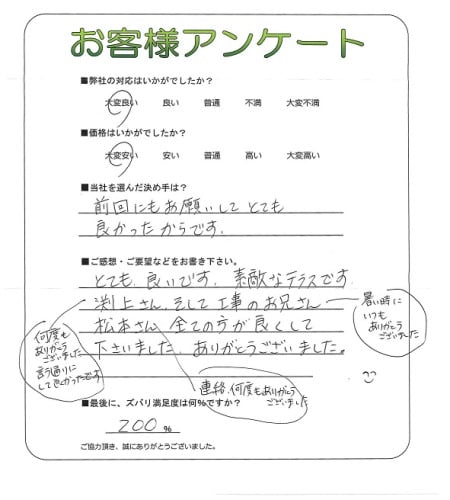 お客様アンケート
■弊社の対応はいかがでしたか?
大変良い 良い 普通 不満 大変不満
■価格はいかがでしたか?
大変安い 安い 普通 高い 大変高い
■当社を選んだ決め手は?
前回にもお願いしてとても
良かったからです.
■ご感想・ご要望などをお書き下さい。
とても、良いです. 素敵なテラスです.
渕上さん、そして工事のお兄さん
松本さん、全ての方が良くして
下さいました. ありがとうございました。
暑い時に
いつも
ありがとう
ございました
何度も
ありがとう
ございました
言う通りに
して良かったです
連絡、何度もありがとう
ございました
■最後に、ズバリ満足度は何%ですか?
200 %
ご協力頂き、誠にありがとうございました。